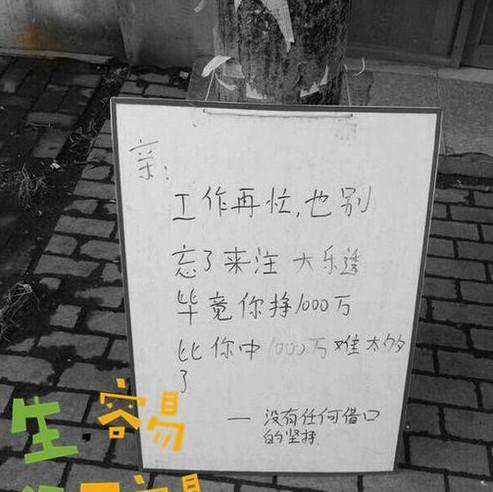 亲：
工作再忙，也别
忘了来注大乐透
毕竟你挣1000万
比你中1000万难太多
了
一 没有任何借口
的坚持
生 容易